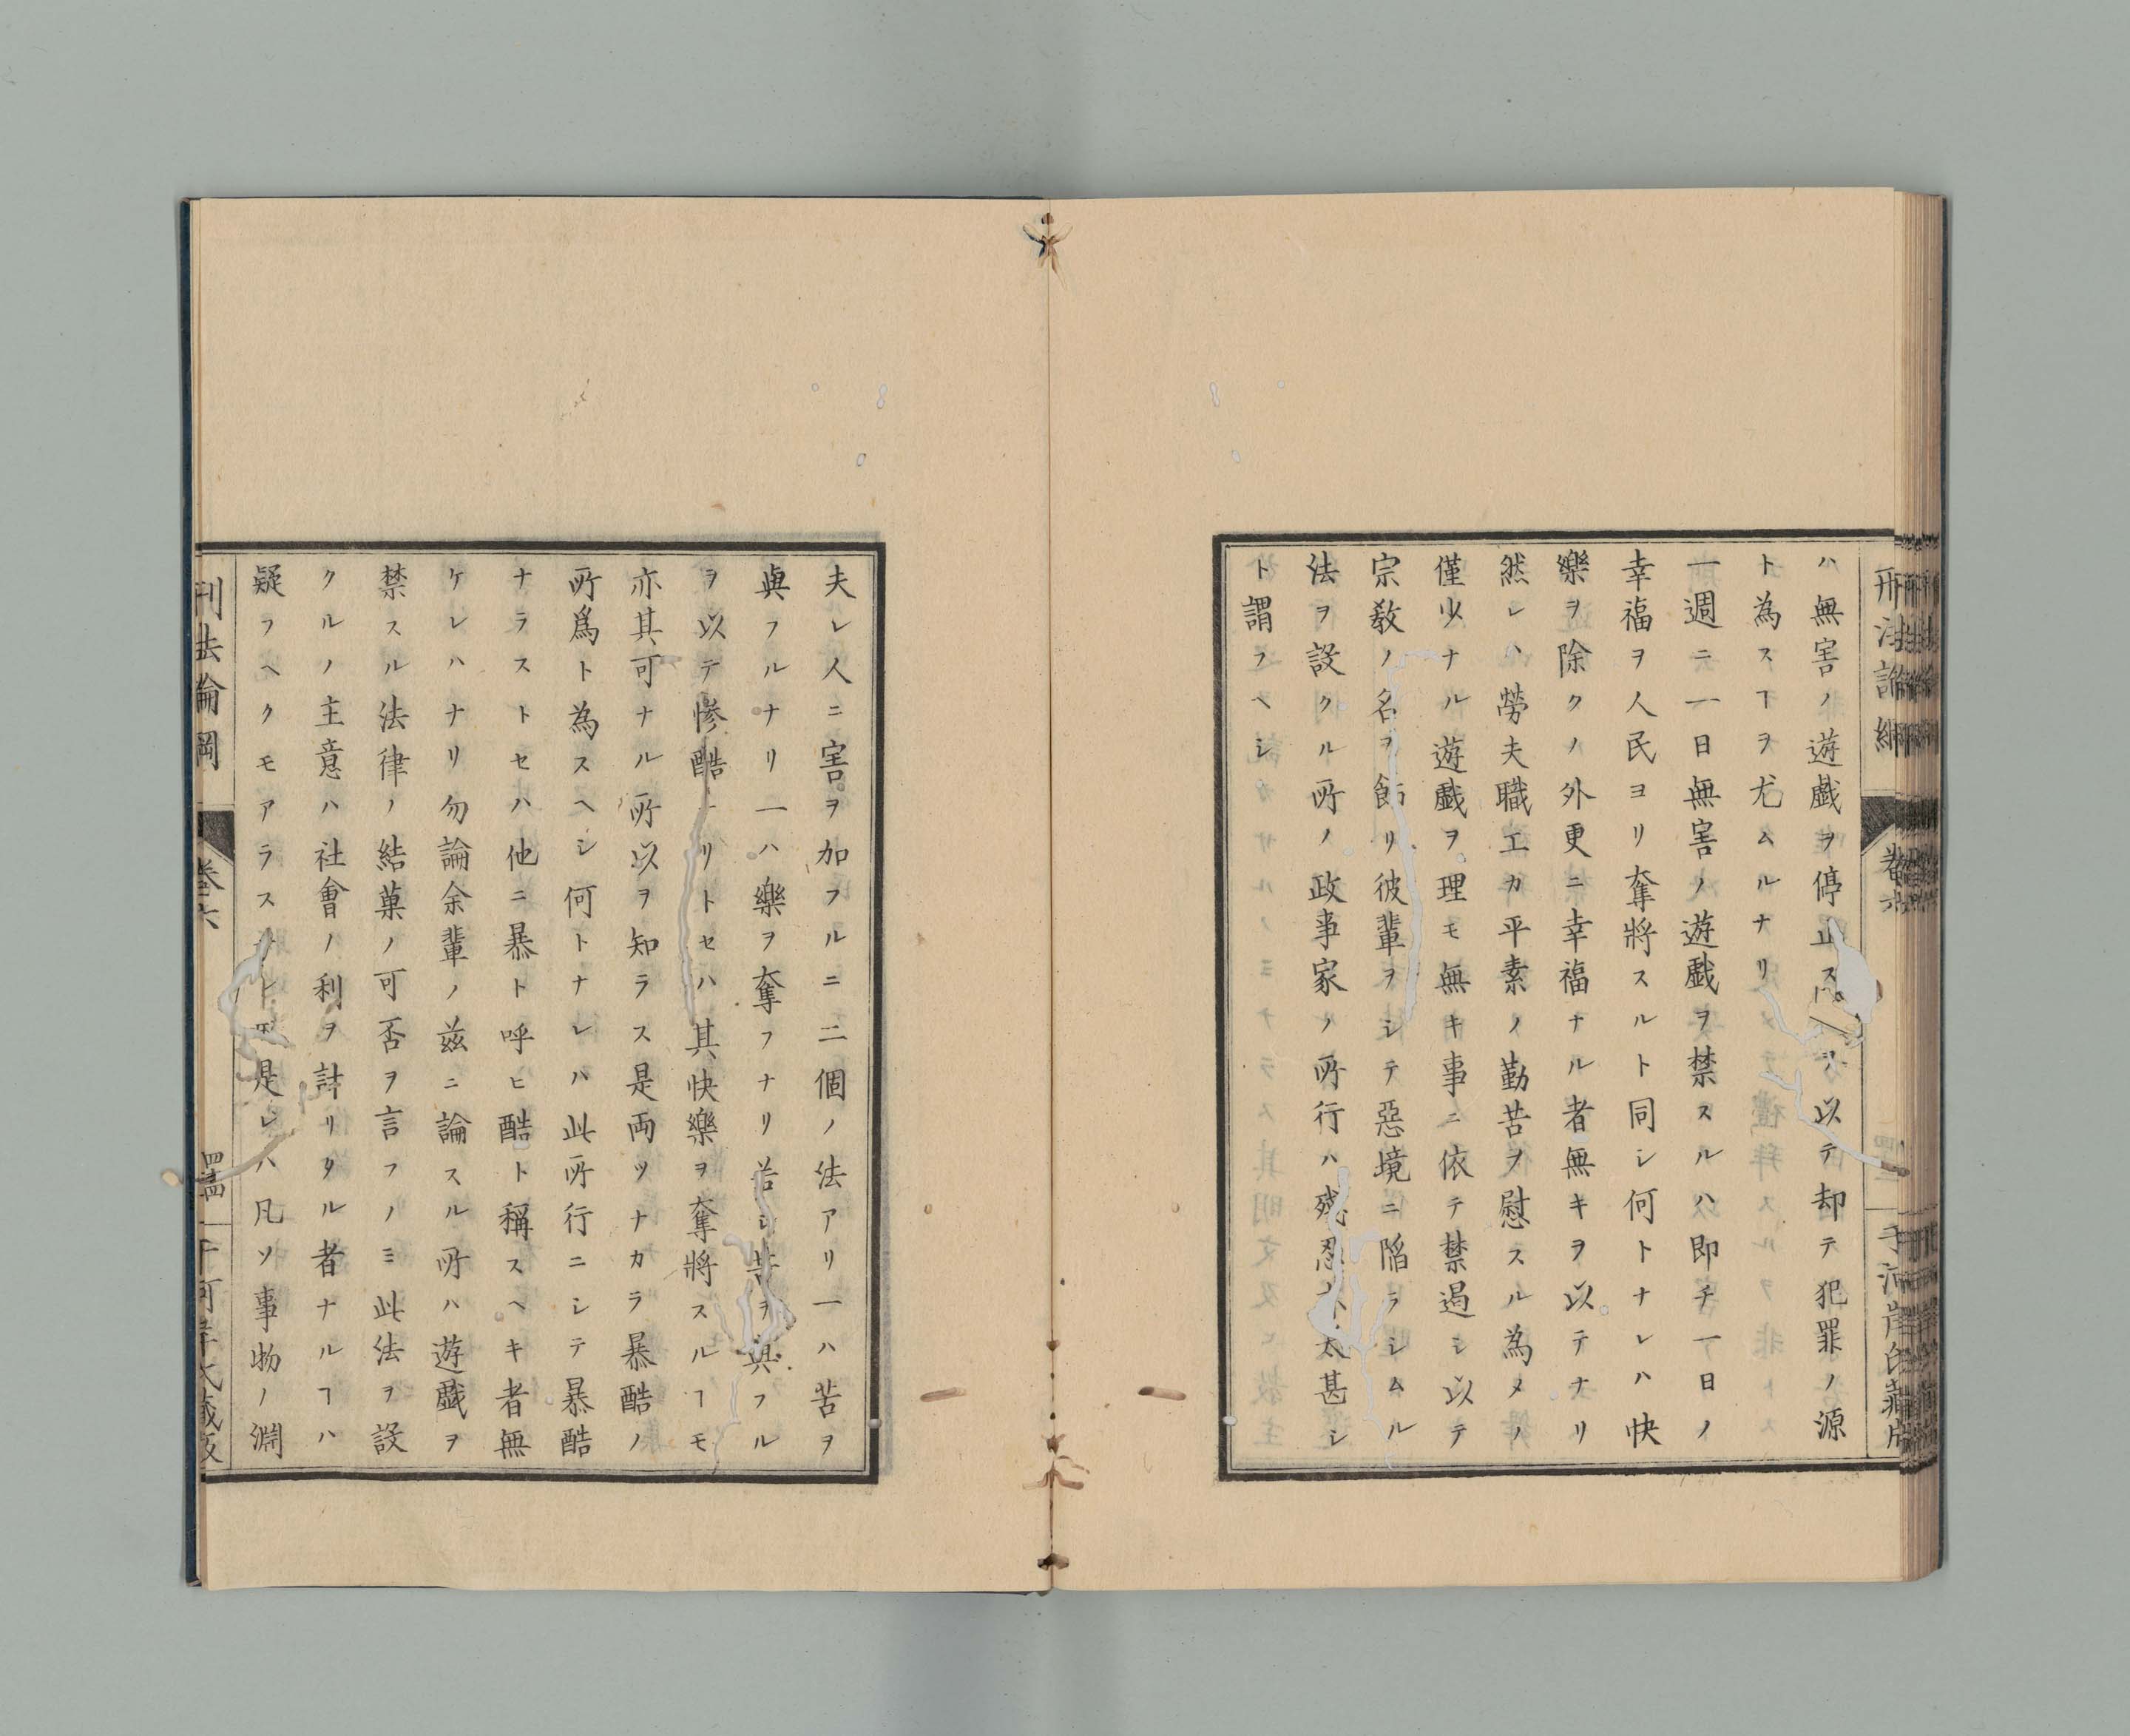 刑法論綱
卷六
ハ無害ノ遊戯ヲ停止スルヲ以テ却テ犯罪ノ源
ト為スヿヲ尤ムルナリ
一週ニ一日無害ノ遊戯ヲ禁スルハ即チ一日ノ
幸福ヲ人民ヨリ奪將スルト同シ何トナレハ快
樂ヲ除クノ外更ニ幸福ナル者無キヲ以テナリ
然レハ勞夫職工カ平素ノ勤苦ヲ慰スル為メノ
僅少ナル遊戯ヲ理モ無キ事ニ依テ禁遏シ以テ
宗敎ノ名ヲ飾リ彼輩ヲシテ惡境ニ陥ラシムル
法ヲ設クル所ノ政事家ノ所行ハ殘忍太甚シ
ト謂フヘシ
夫レ人ニ害ヲ加フルニ二個ノ法アリ一ハ苦ヲ
與フルナリ一ハ樂ヲ奪フナリ若シ苦ヲ與フル
ヲ以テ慘酷ナリトセハ其快樂ヲ奪將スルヿモ
亦其可ナル所以ヲ知ラス是両ツナカラ暴酷ノ
所爲ト為スヘシ何トナレハ此所行ニシテ暴酷
ナラストセハ他ニ暴ト呼ヒ酷ト稱スヘキ者無
ケレハナリ勿論余輩ノ茲ニ論スル所ハ遊戯ヲ
禁スル法律ノ結菓ノ可否ヲ言フノミ此法ヲ設
クルノ主意ハ社會ノ利ヲ計リタル者ナルヿハ
疑フヘクモアラス是レハ凡ソ事物ノ淵
刑法論綱
卷六
四十四